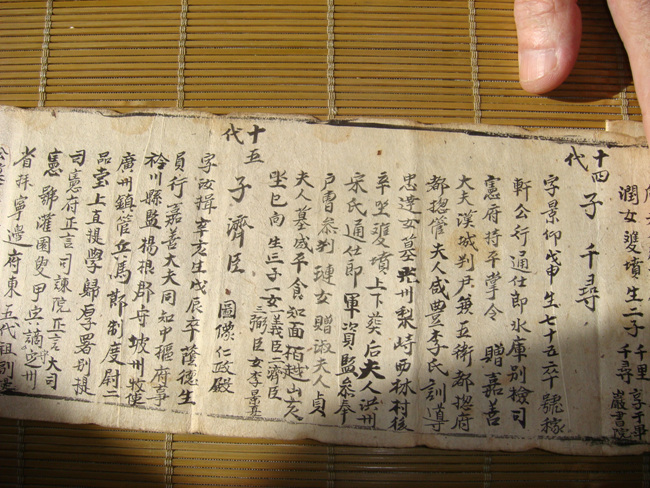 潤女雙墳生二子 千里 千尋 巖書院
十四代 子 千尋
字景仰戊申生七十五卒 號稼
軒公行通仕郎氷庫別檢司
憲府持平掌令 贈嘉善
大夫漢城判尹兼五衛都摠府
都摠管夫人咸豊李氏訓導
忠達女墓光州梨峙西林村後
坐雙墳上下葬后夫人洪州
宋氏通仕郎軍資監參奉
戶曹參判璉女贈淑夫人貞
夫人墓咸平食知面栢越山亥
坐巳向生三子一女 義臣二濟臣 三弼臣女李景
十五代 子濟臣 圖像仁政殿
字汝楫辛亥生戊辰卒隆德生
員行嘉善大夫同知中樞府事
衿川縣監楊根郡守坡州牧使
廣州鎮管兵馬節制度尉二
品堂上直提學歸厚署別提
司憲府正言司諫院正言大司
憲 號灌園叟 謫定州
省拜寧邊府東五代祖別